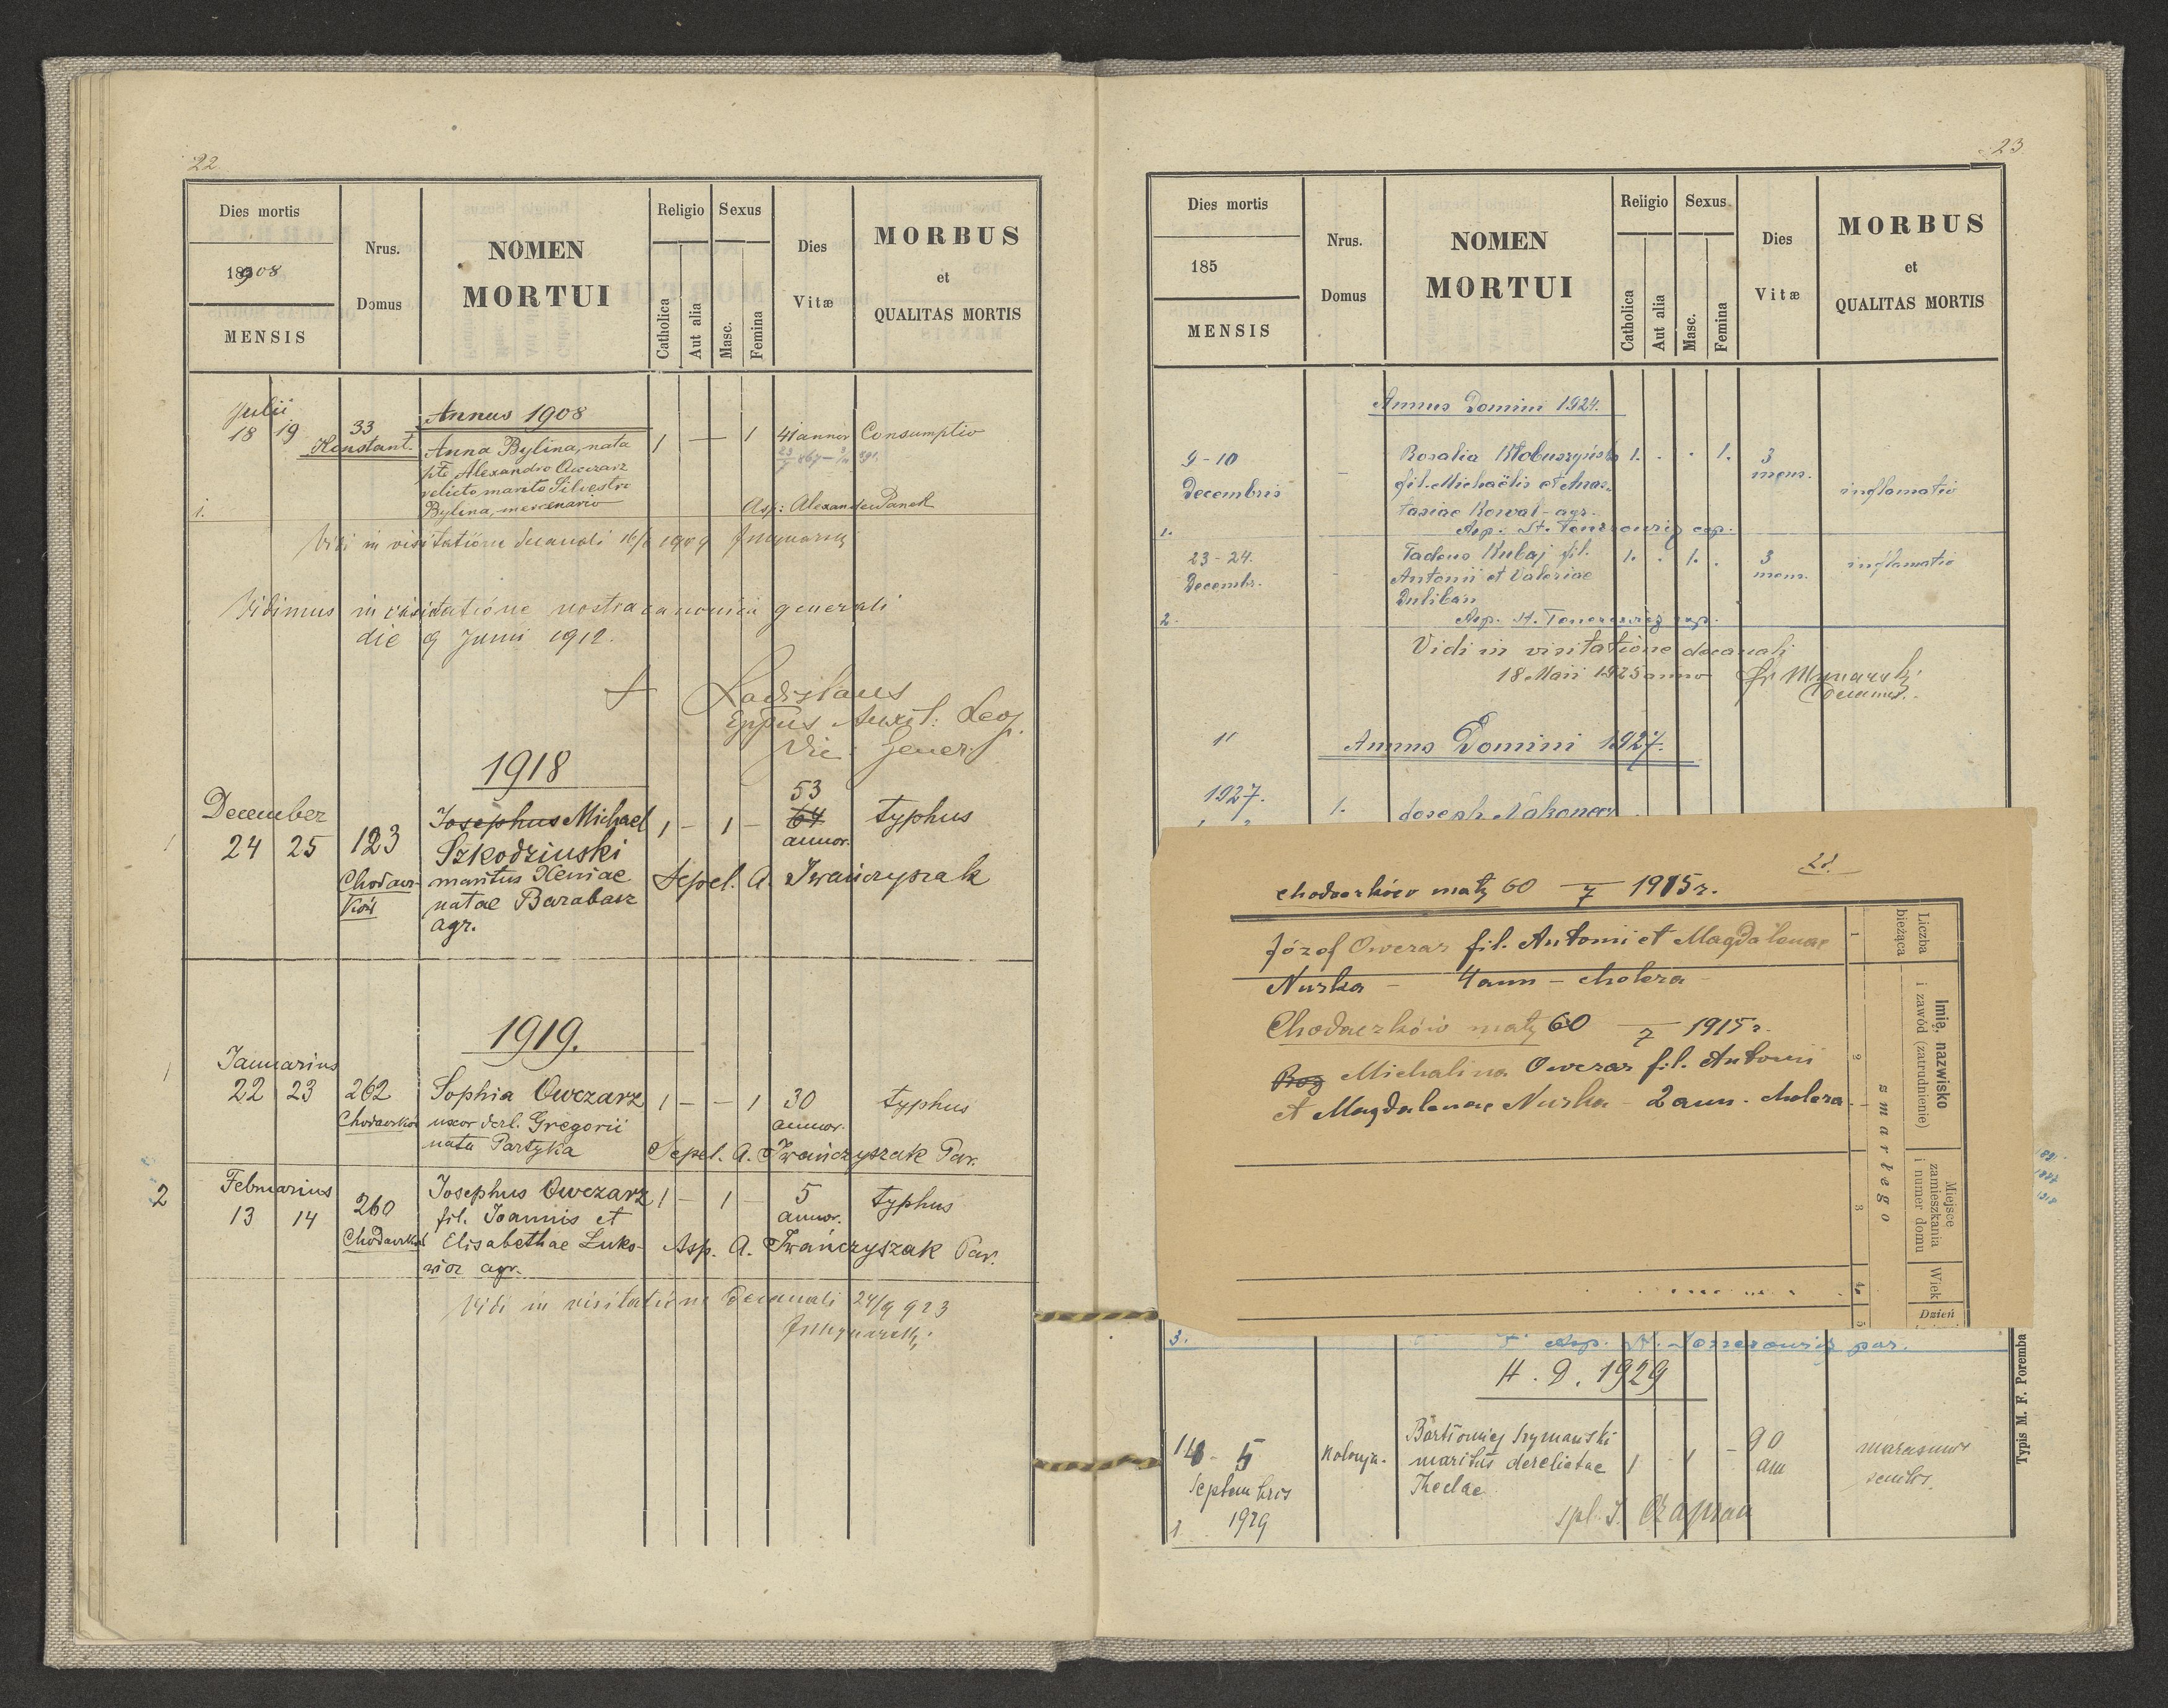 22
Dies mortis
1908
MENSIS
Nrus.
Domus
NOMEN
MORTUI
Religio
Catholica
Aut alia
Sexus
Masc.
Femina
Dies
Vitæ
MORBUS
et
QUALITAS MORTIS
Julii
18 19
33
Konstant.
Annus 1908
Anna Bylina, nata
pte Alexandro Owczarz
relicto marito Silvestro
Bylina, mercenario
1 — 1
41 annor
Consumptio
Asp: Alexander Panek
1.
Vidi in visitatione decanali 16/ 1909
Vidimus in visitatione nostra canonica generali
die 9 Junii 1912.
+ Ladislaus
Eppus Auxil: Leop.
Vic. Gener.
1918
December
1 24 25
123
Chodacz-
ków
Josephus Michael
Szkodziński
maritus Xeniae
natae Barabasz
agr.
1 — 1 —
53
64
annor.
typhus
Sepel. A. Iwańczyszak
1919.
Januarius
1 22 23
262
Chodaczków
Sophia Owczarz
uxor derl. Gregorii
nata Partyka
1 — — 1
30
annor.
typhus
Sepel. A. Iwańczyszak Par.
Februarius
2 13 14
260
Chodaczków
Josephus Owczarz
fil. Joannis et
Elisabethae Łuko-
wicz agr.
1 — 1 —
5
annor.
typhus
Asp. A. Iwańczyszak Par.
Vidi in visitatione decanali 24/9 923
23
Dies mortis
185
MENSIS
Nrus.
Domus
NOMEN
MORTUI
Religio
Catholica
Aut alia
Sexus
Masc.
Femina
Dies
Vitæ
MORBUS
et
QUALITAS MORTIS
Annus Domini 1924.
9-10
Decembris
Rosalia
fil. Michaëlis et Anas-
tasiae Kowal - agr.
1. . . 1.
3
mens.
inflamatio
1.
Asp. St. exp.
23-24.
Decembr.
Tadeus Kubaj fil.
Antonii et Valeriae
Duliban
1. . 1. .
3
mens.
inflamatio
2.
Asp. St. exp.
Vidi in visitatione decanali
18 Maii 1925 anno
Decanus.
Annus Domini 1927.
1927.
1.
Joseph
21.
Chodaczków mały 60 — 7 1915 r.
Józef Owczar fil. Antoni et Magdalenae
Nurka — 4 ann — cholera
Chodaczków mały 60 — 7 1915 r.
Roz Michalina Owczar fil. Antonii
et Magdalenae Nurka — 2 ann. cholera
Liczba
bieżąca
1
Imię, nazwisko
i zawód (zatrudnienie)
2
zmarłego
Miejsce
zamieszkania
i numer domu
3
Wiek
4
Dzień
5
3.
Asp. St. par.
A. D. 1929
14 - 5
Septembris
1929
1
Kolonja.
Bartłomiej Szymański
maritus derelictae
Theclae
1 1 —
90
ann
marasmus
senilis.
spl. J. Czapran
Typis M. F. Poremba